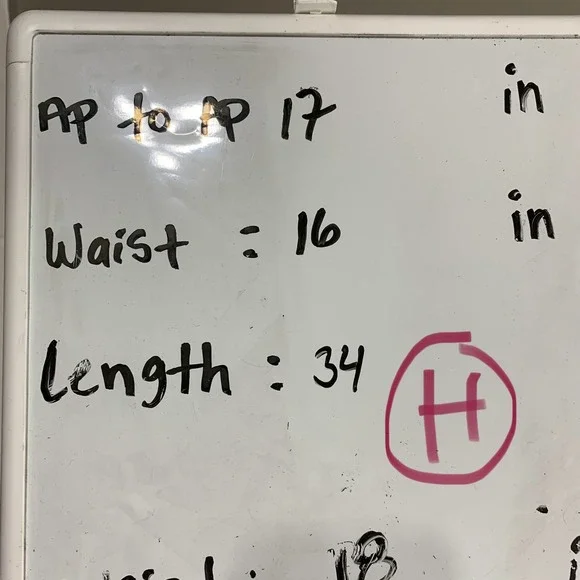 AP to AP 17 in
Waist : 16 in
Length : 34
H
18